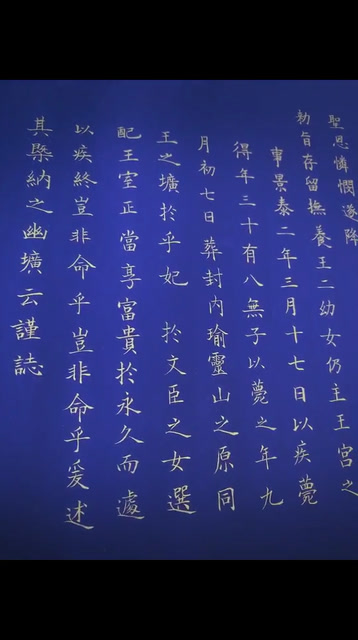 聖恩憐憫遂降
勑旨存留撫養王二幼女仍主王宮之
事景泰二年三月十七日以疾薨
得年三十有八無子以薨之年九
月初七日葬封內瑜靈山之原同
王之壙於乎妃 於文臣之女選
配王室正當享富貴於永久而遽
以疾終豈非命乎豈非命乎爰述
其槩納之幽壙云謹誌